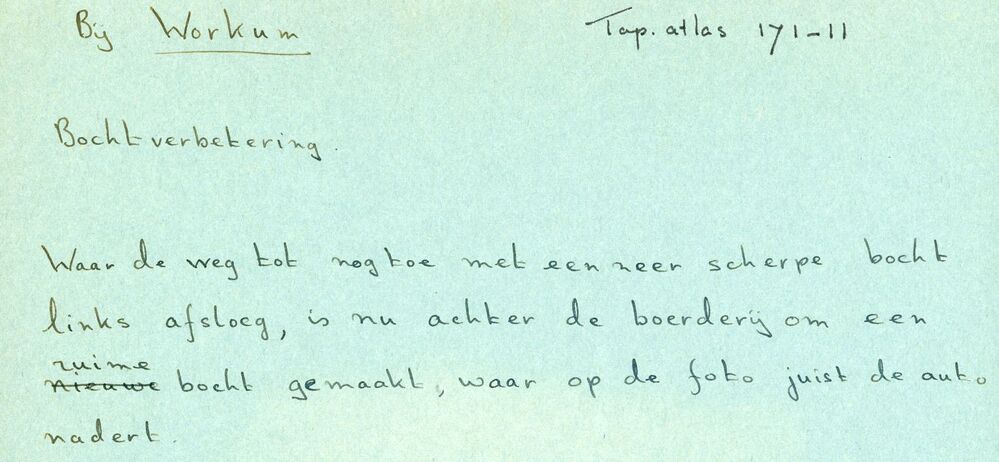 Bij Workum Top. atlas 171-11
Bochtverbetering.
Waar de weg tot nog toe met een zeer scherpe bocht
links afsloeg, is nu achter de boerderij om een
ruime
nieuwe bocht gemaakt, waar op de foto juist de auto
nadert.